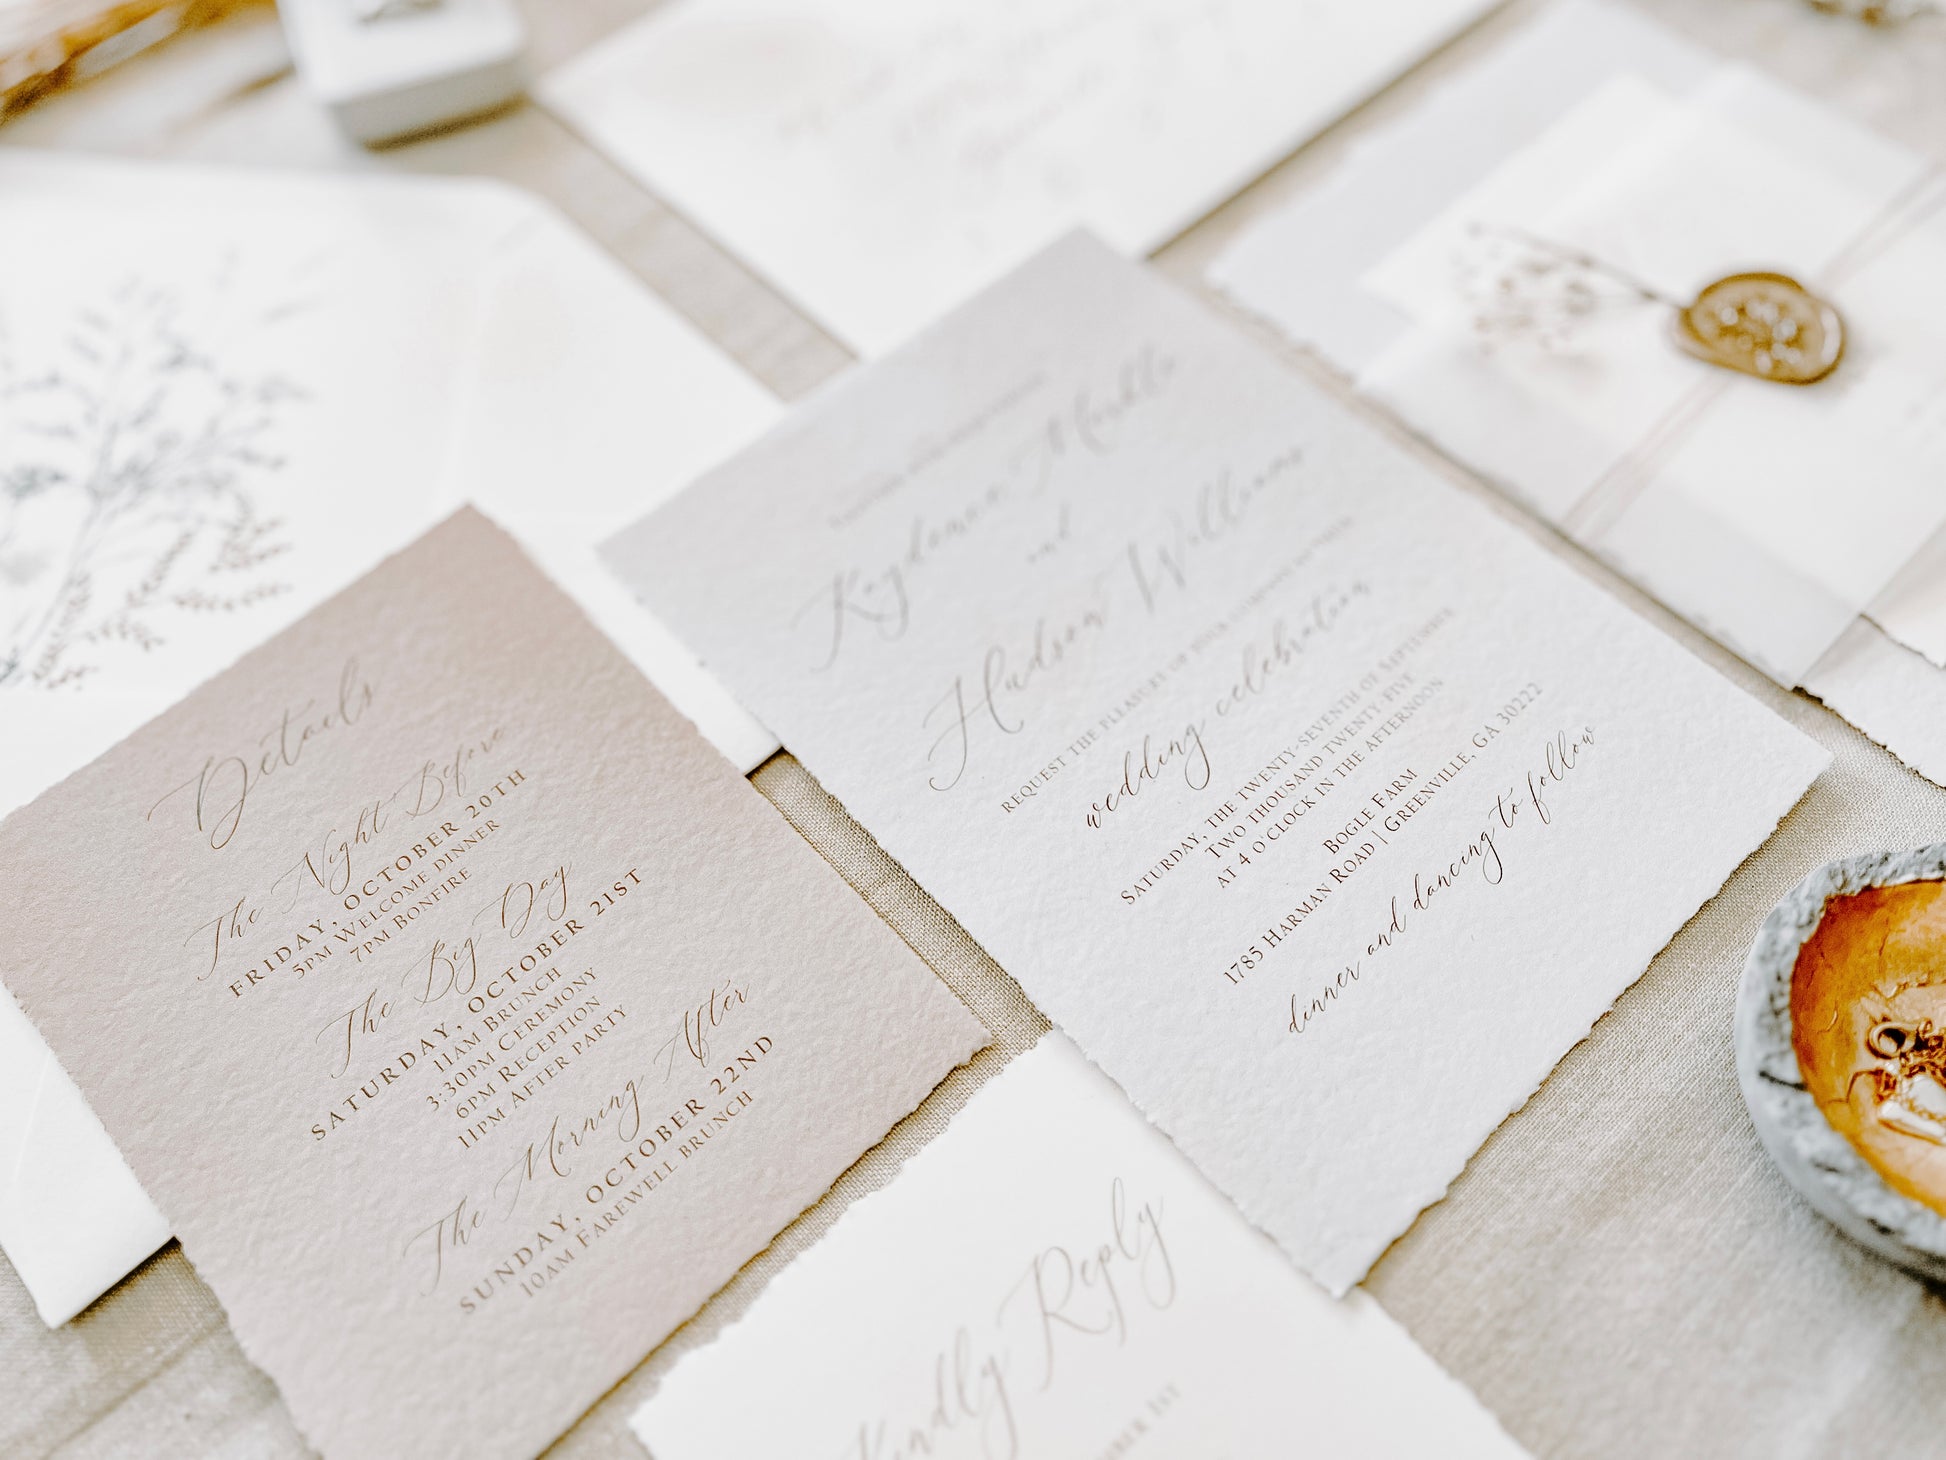 Details
The Night Before
FRIDAY, OCTOBER 20TH
5PM WELCOME DINNER
7PM BONFIRE
The Big Day
SATURDAY, OCTOBER 21ST
11AM BRUNCH
3:30PM CEREMONY
6PM RECEPTION
11PM AFTER PARTY
The Morning After
SUNDAY, OCTOBER 22ND
10AM FAREWELL BRUNCH
and
Hudson Williams
REQUEST THE PLEASURE OF YOUR COMPANY AT THEIR
wedding celebration
SATURDAY, THE TWENTY-SEVENTH OF SEPTEMBER
TWO THOUSAND TWENTY FIVE
AT 4 O'CLOCK IN THE AFTERNOON
BOGLE FARM
1785 HARMAN ROAD | GREENVILLE, GA 30222
dinner and dancing to follow
Kindly Reply
1ST